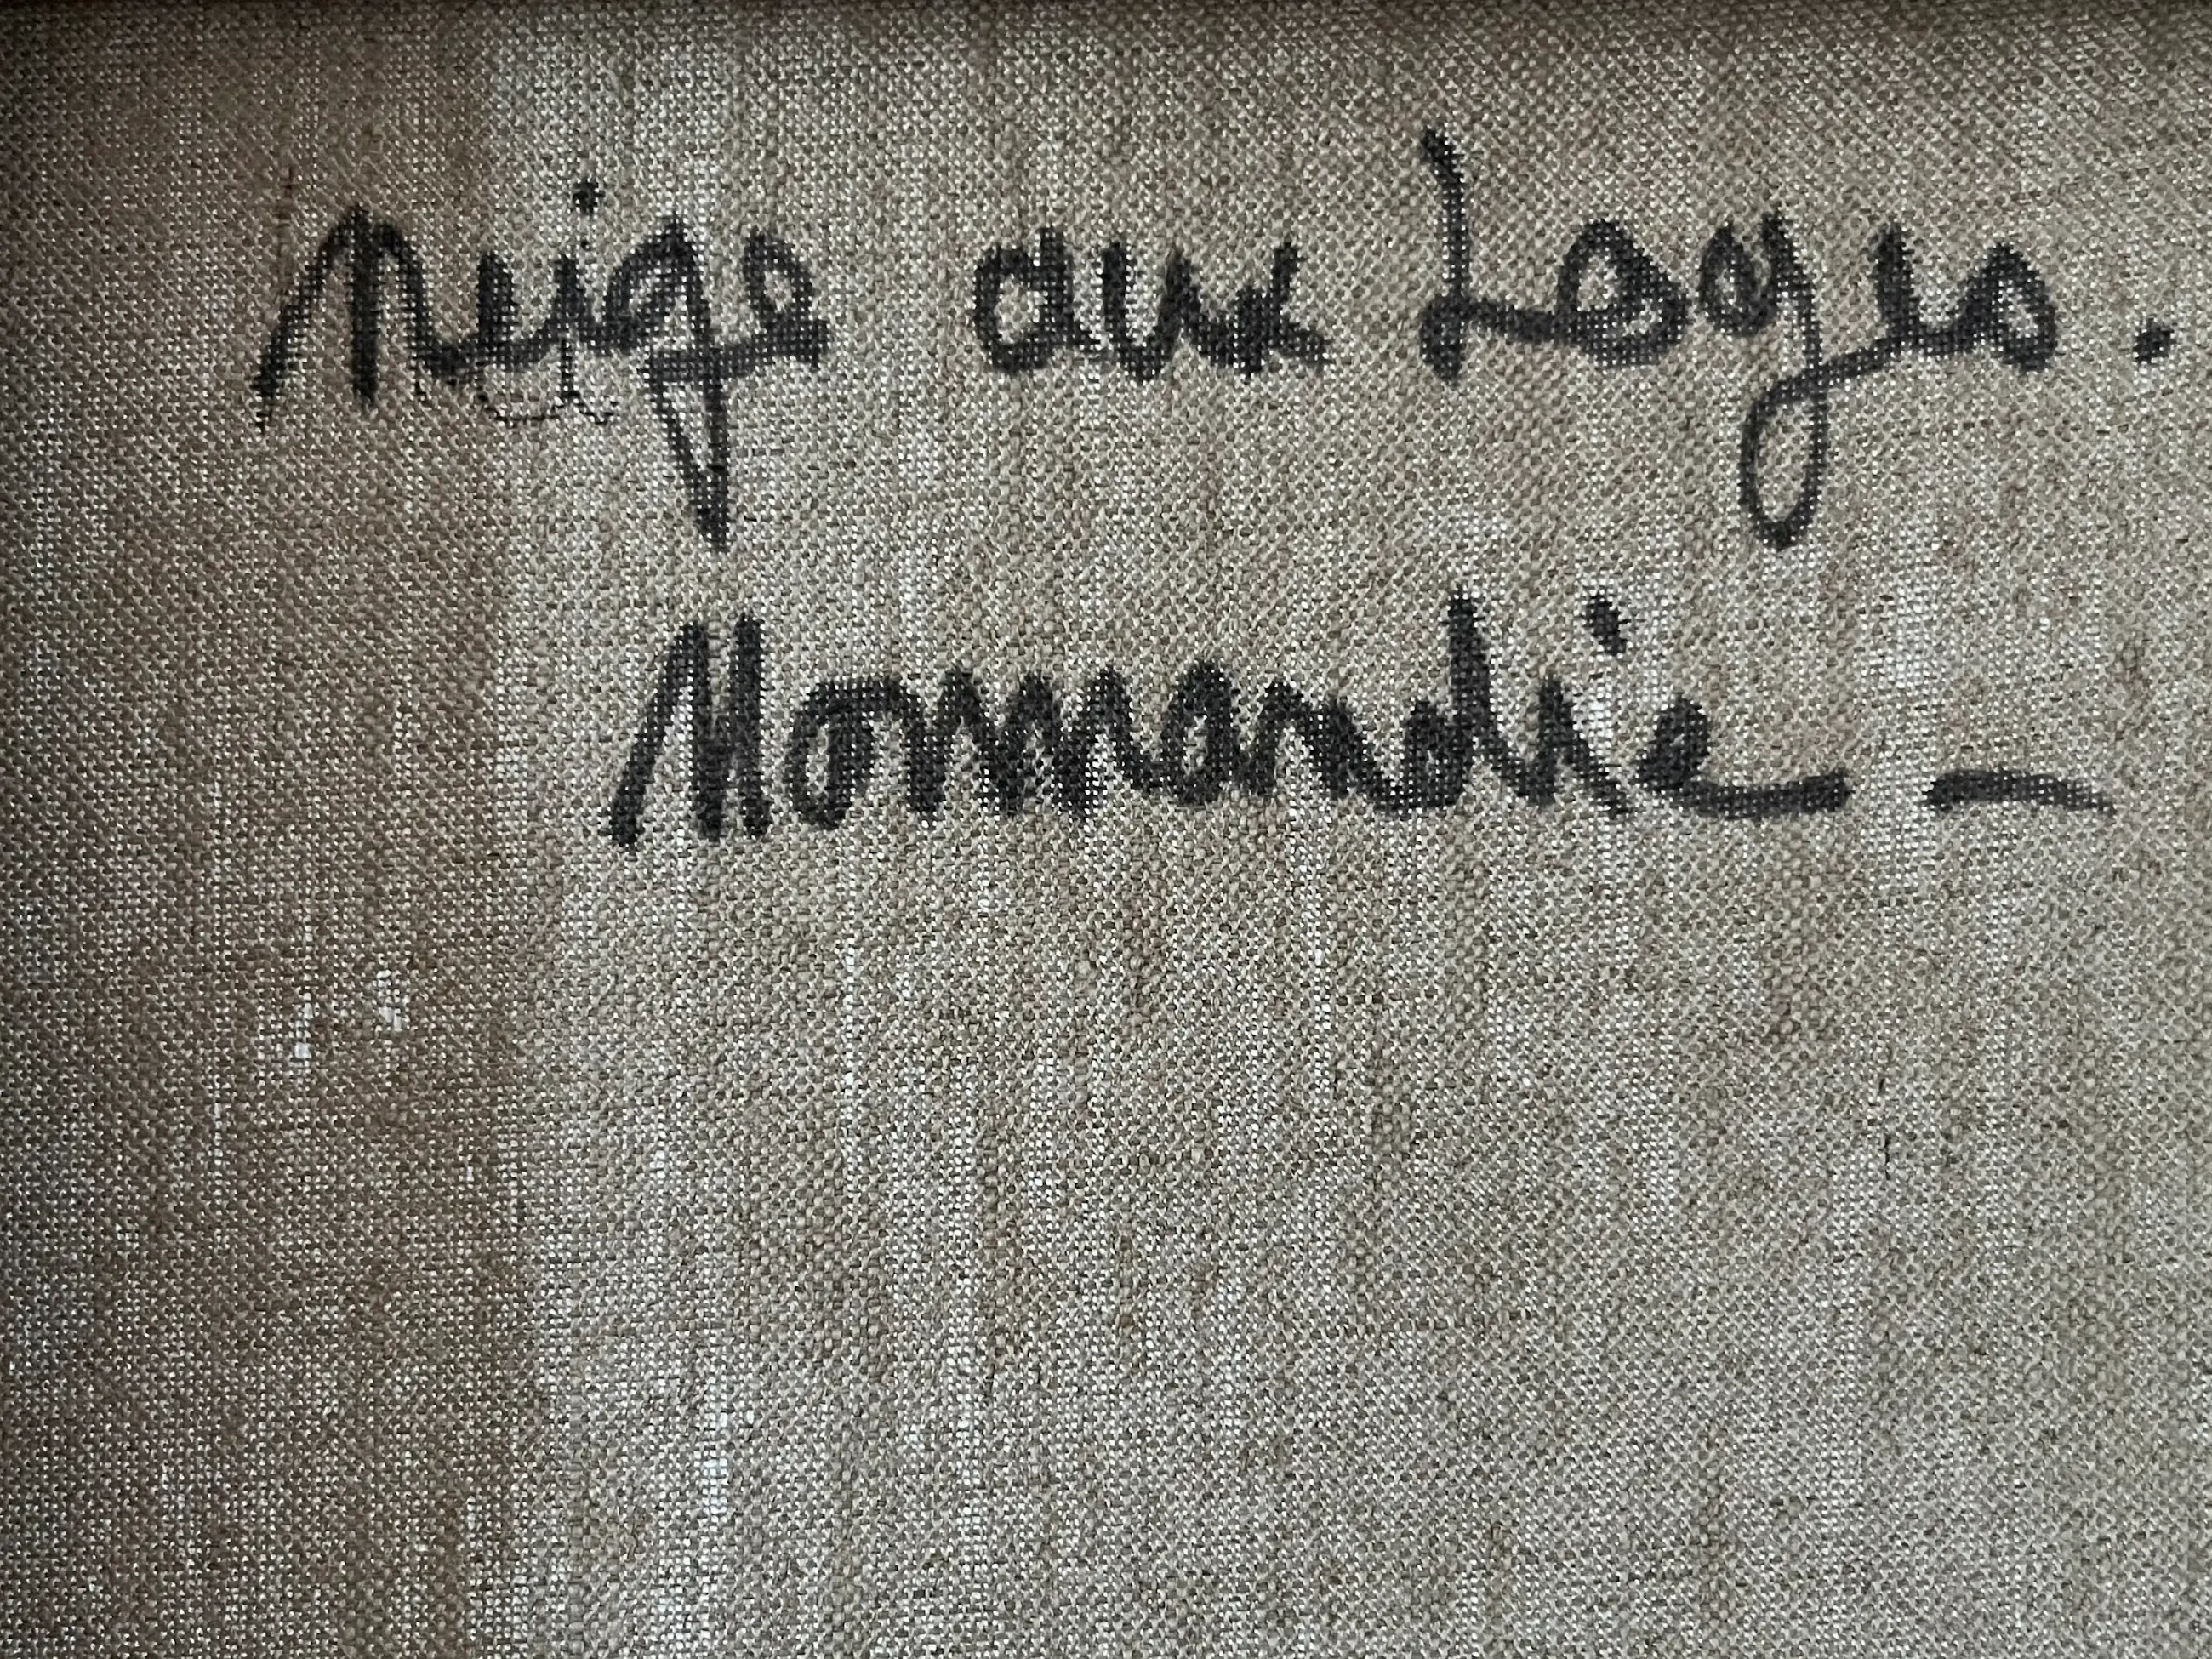 Neige aux Loges.
Normandie —